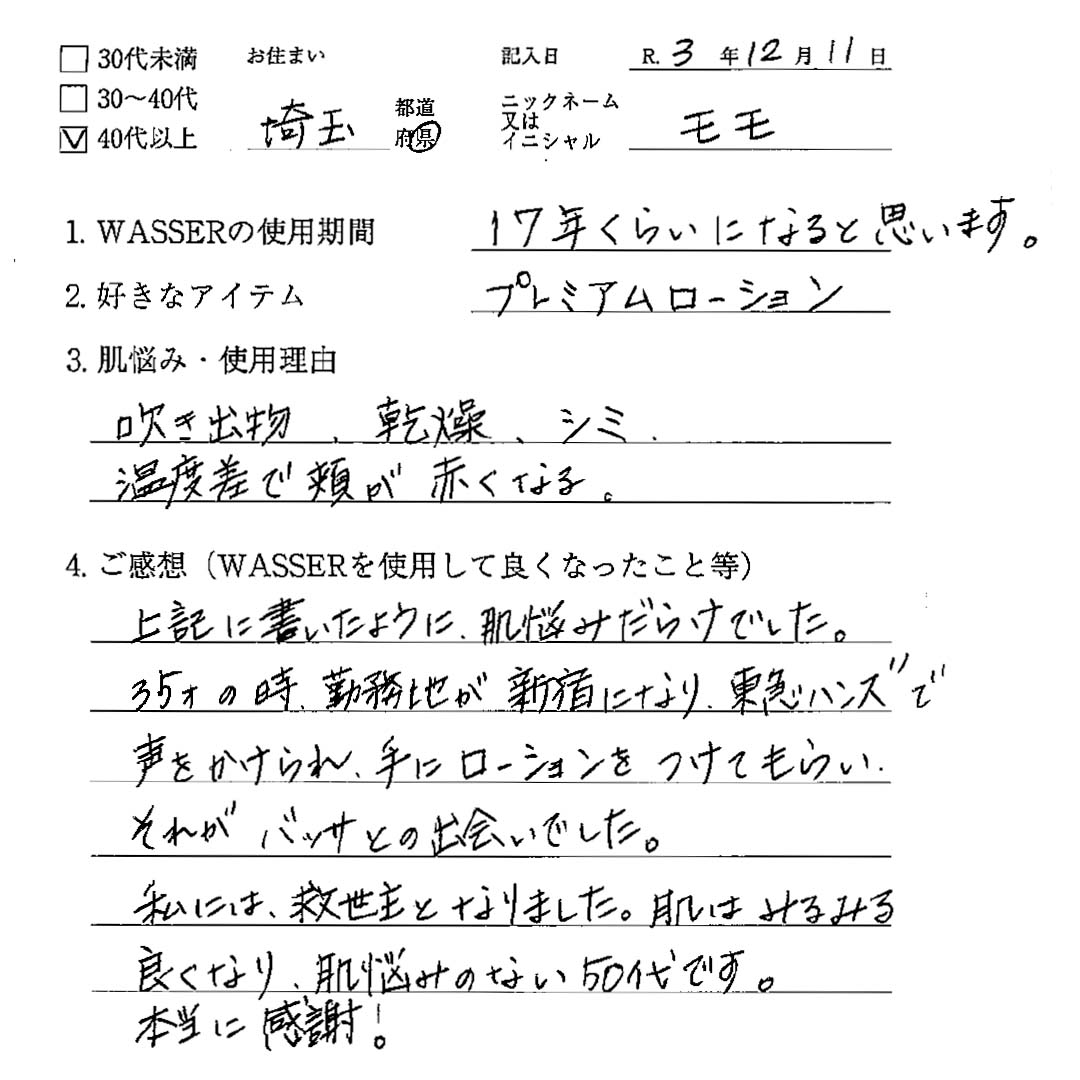 □ 30代未満 お住まい 記入日 R. 3 年 12 月 11 日
□ 30～40代 埼玉 都道府県 ニックネーム又はイニシャル モモ
☑ 40代以上
1. WASSERの使用期間 17年くらいになると思います。
2. 好きなアイテム プレミアムローション
3. 肌悩み・使用理由
吹き出物、乾燥、シミ、
温度差で頬が赤くなる。
4. ご感想（WASSERを使用して良くなったこと等）
上記に書いたように、肌悩みだらけでした。
35才の時、勤務地が新宿になり、東急ハンズ"で
声をかけられ、手にローションをつけてもらい、
それがバッサとの出会いでした。
私には、救世主となりました。肌はみるみる
良くなり、肌悩みのない50代です。
本当に感謝！